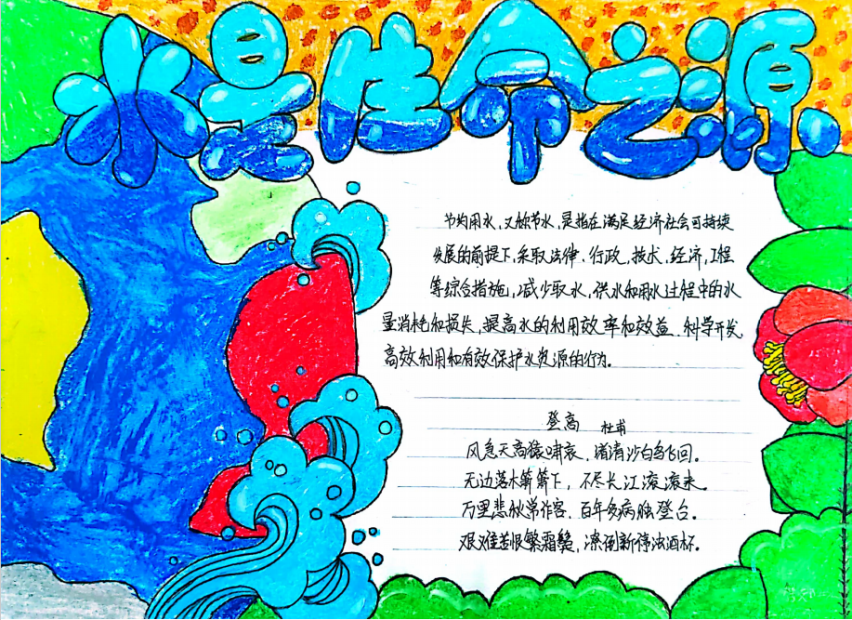 水是生命之源
节约用水，又称节水，是指在满足经济社会可持续
发展的前提下，采取法律、行政，技术，经济，工程
等综合措施，减少取水，供水和用水过程中的水
量消耗和损失，提高水的利用效率和效益、科学开发
高效利用和有效保护水资源的行为。
登高 杜甫
风急天高猿啸哀、渚清沙白鸟飞回。
无边落木萧萧下，不尽长江滚滚来。
万里悲秋常作客、百年多病独登台。
艰难苦恨繁霜鬓，潦倒新停浊酒杯。